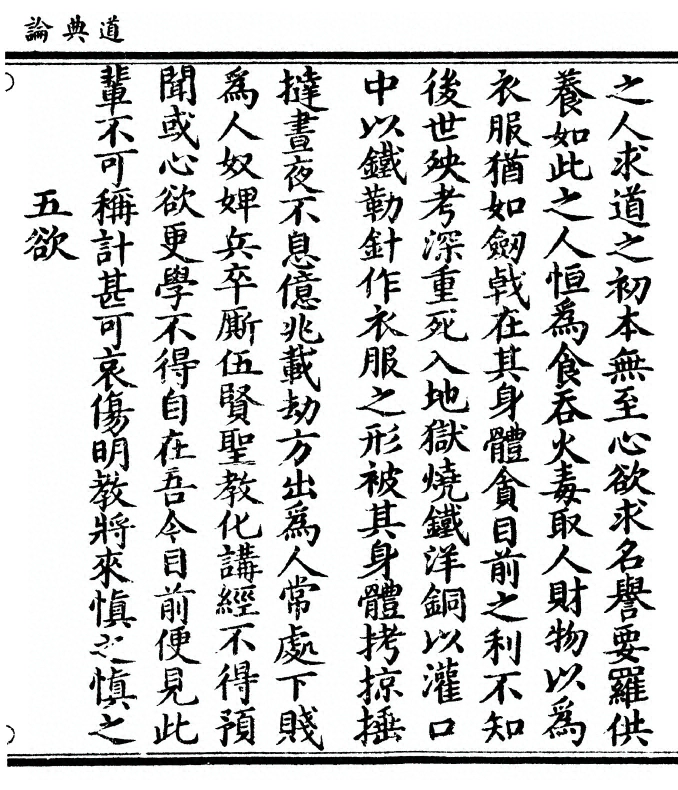 道典論
之人求道之初本無至心欲求名譽要羅供
養如此之人恒為食吞火毒取人財物以為
衣服猶如劒戟在其身體貪目前之利不知
後世殃考深重死入地獄燒鐵洋銅以灌口
中以鐵勒針作衣服之形被其身體拷掠捶
撻晝夜不息億兆載劫方出為人常處下賤
為人奴婢兵卒厮伍賢聖教化講經不得預
聞或心欲更學不得自在吾今目前便見此
輩不可稱計甚可哀傷明教將來慎之慎之
五欲